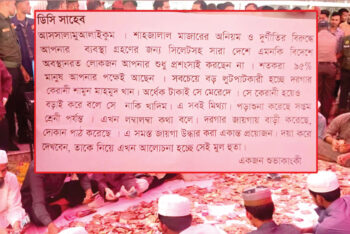 ডিসি সাহেব
আসসালামুআলাইকুম । শাহজালাল মাজারের অনিয়ম ও দুর্নীতির বিরুদ্ধে
আপনার ব্যবস্থা গ্রহণের জন্য সিলেটসহ সারা দেশে এমনকি বিদেশে
অবস্থানরত লোকজন আপনার শুধু প্রশংসাই করছেন না । শতকরা ৯৫%
মানুষ আপনার পক্ষেই আছেন । সবচেয়ে বড় লুটপাটকারী হচ্ছে দরগার
কেরানী শামুন মাহমুদ খান। অর্ধেক টাকাই সে মেরেদে । সে কেরানী হয়েও
বড়াই করে বলে সে নাকি খাদিম । এ সবই মিথ্যা। পড়াশুনা করেছে সপ্তম
শ্রেনী পর্যন্ত । এখন লম্বালম্বা কথা বলে। দরগার জায়গায় বাড়ী করেছে,
দোকান পাঠ করেছে । এ সমস্ত জায়গা উদ্ধার করা একান্ত প্রয়োজন। দয়া করে
দেখবেন, তাকে নিয়ে এখন আলোচনা হচ্ছে সেই মূল হুতা।
একজন শুভাকাংকী